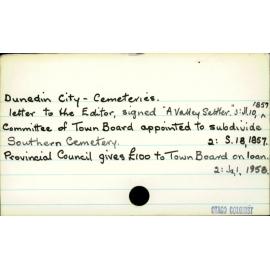 Dunedin City - Cemeteries.
letter to the Editor, signed "A Valley Settler." 3: Jl 10, ^ 1857
Committee of Town Board appointed to subdivide
Southern Cemetery. 2: S. 18, 1857.
Provincial Council gives £100 to Town Board on loan.
2: Ja 1, 1958.
OTAGO COLONIST